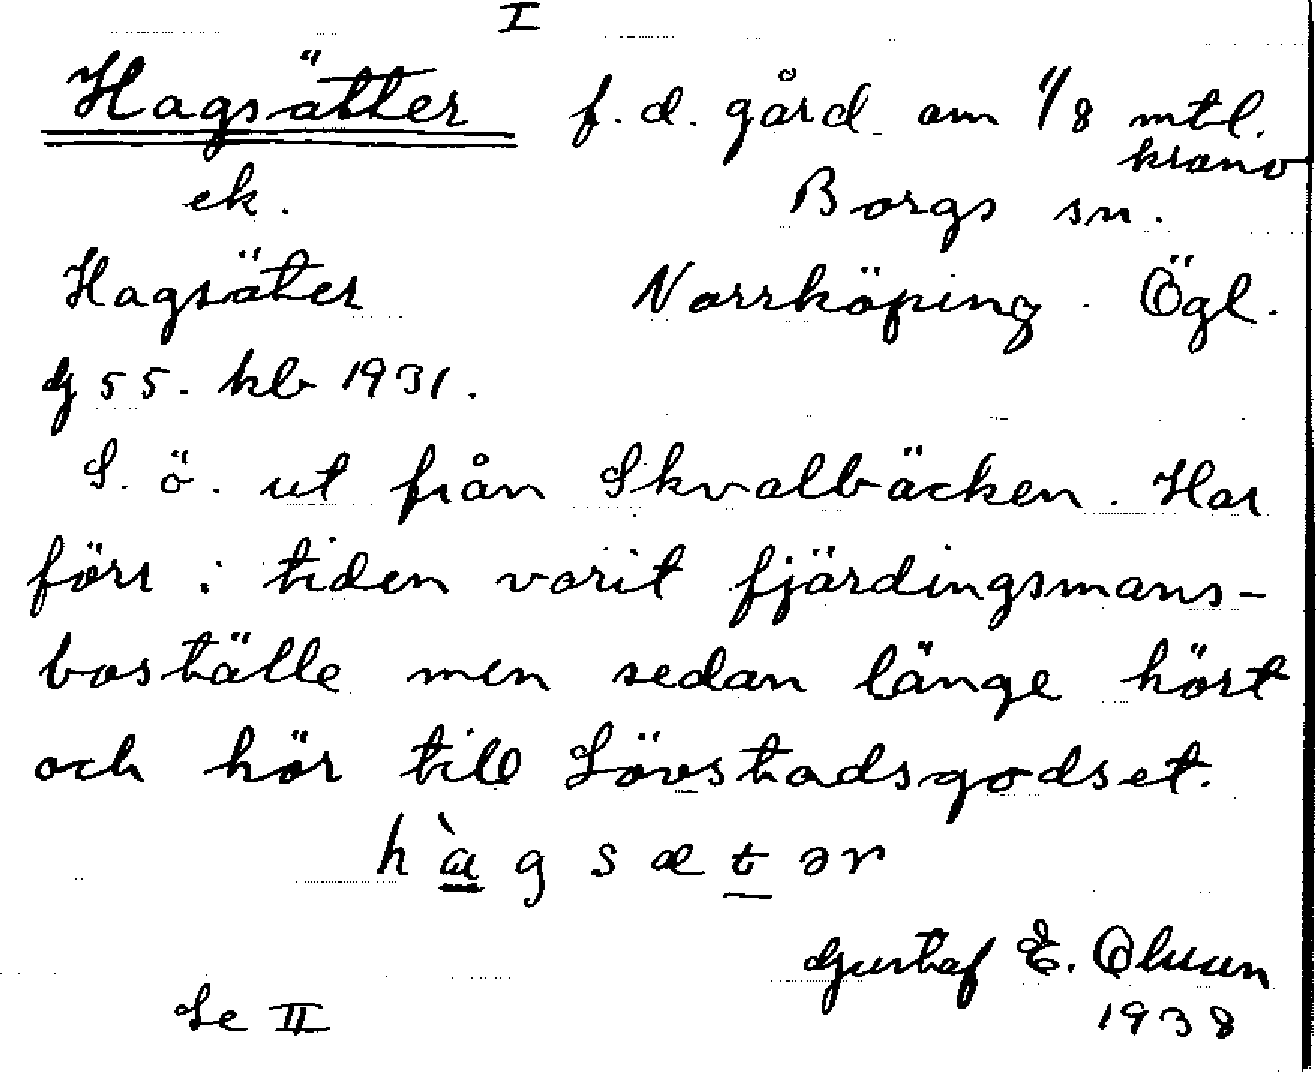 I
Hagsätter f.d. gård om 1/8 mtl.
krono
ek. Borgs sn.
Hagsäter Norrköping. Ögl.
G 55. kb 1931.
S. ö. ut från Skvalbäcken. Har
förr i tiden varit fjärdingsmans-
boställe men sedan länge hört
och hör till Lövstadsgodset.
hàgsætər
Gustaf E. Olsson
1938
Se II